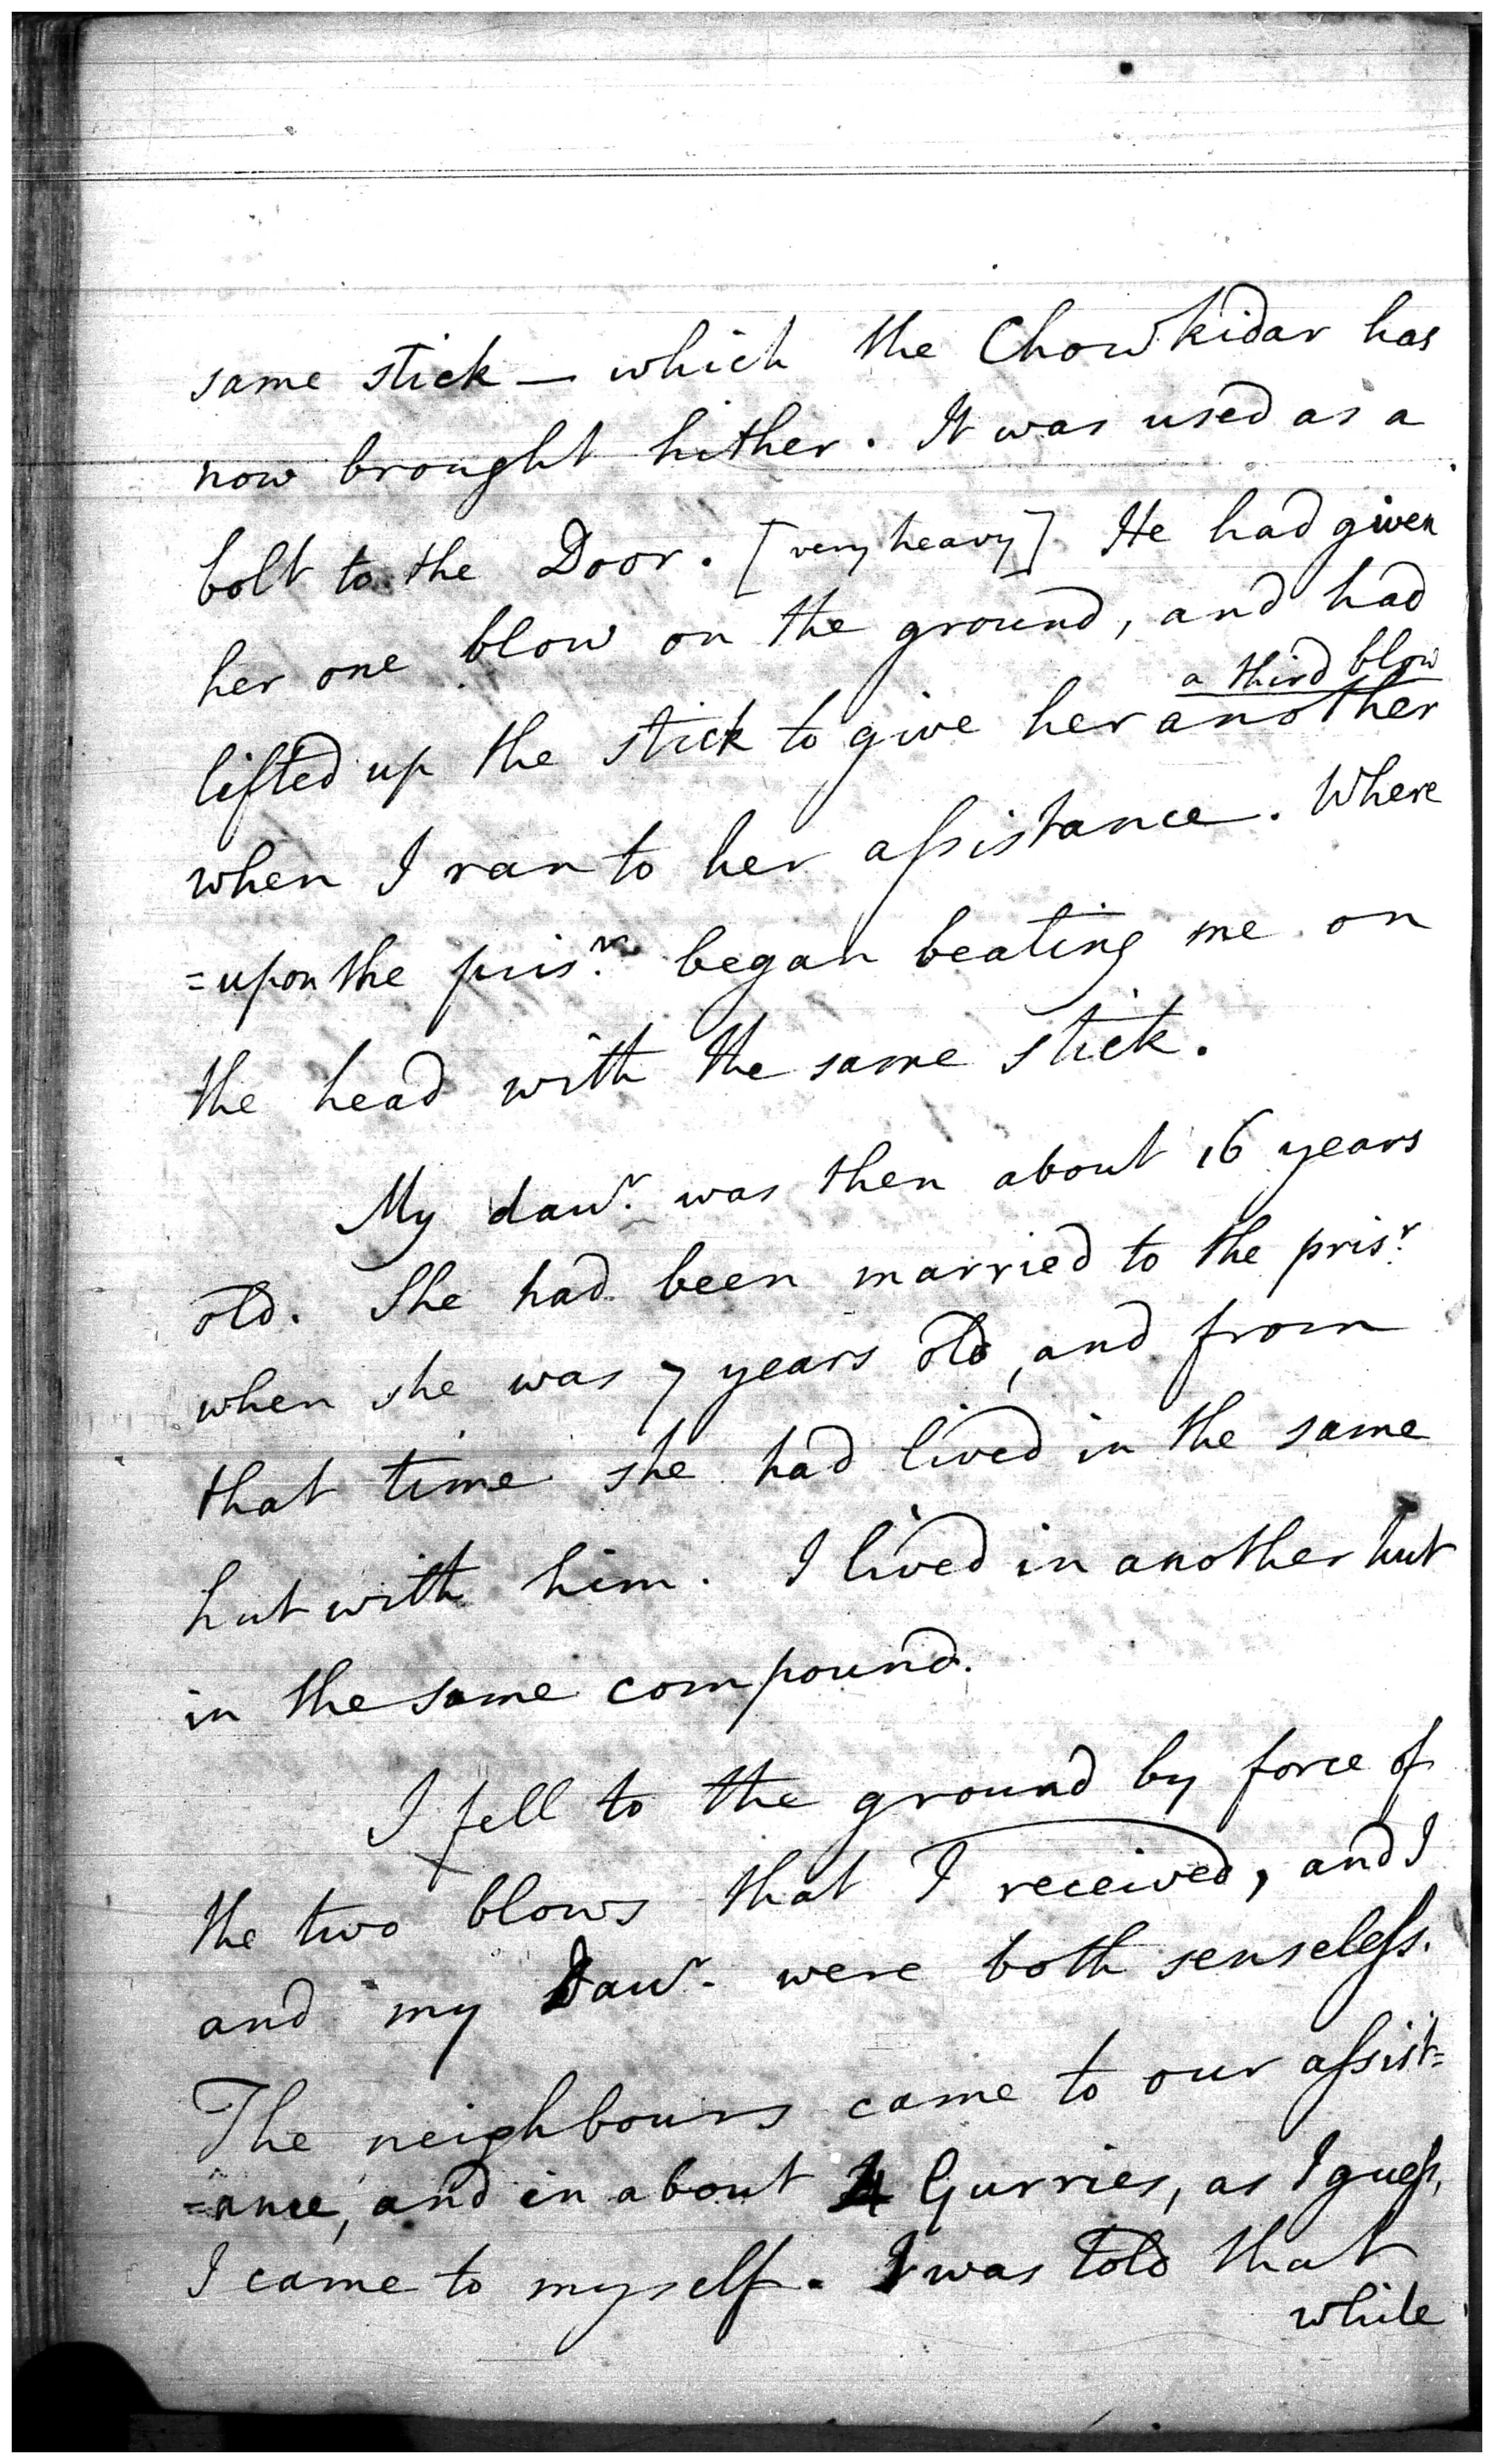 same stick — which the Chowkidar has
now brought hither. It was used as a
bolt to the Door. [very heavy] He had given
her one blow on the ground, and had
a third blow
lifted up the stick to give her another
when I ran to her aſsistance. Where
=upon the prisr. began beating me on
the head with the same stick.
My daur. was then about 16 years
old. She had been married to the prisr.
when she was 7 years old, and from
that time she had lived in the same
hut with him. I lived in another hut
in the same compound.
I fell to the ground by force of
the two blows that I received, and I
and my Daur. were both senseleſs.
The neighbours came to our aſsist=
=ance, and in about 4 Gurries, as I gueſs,
I came to myself. I was told that
while